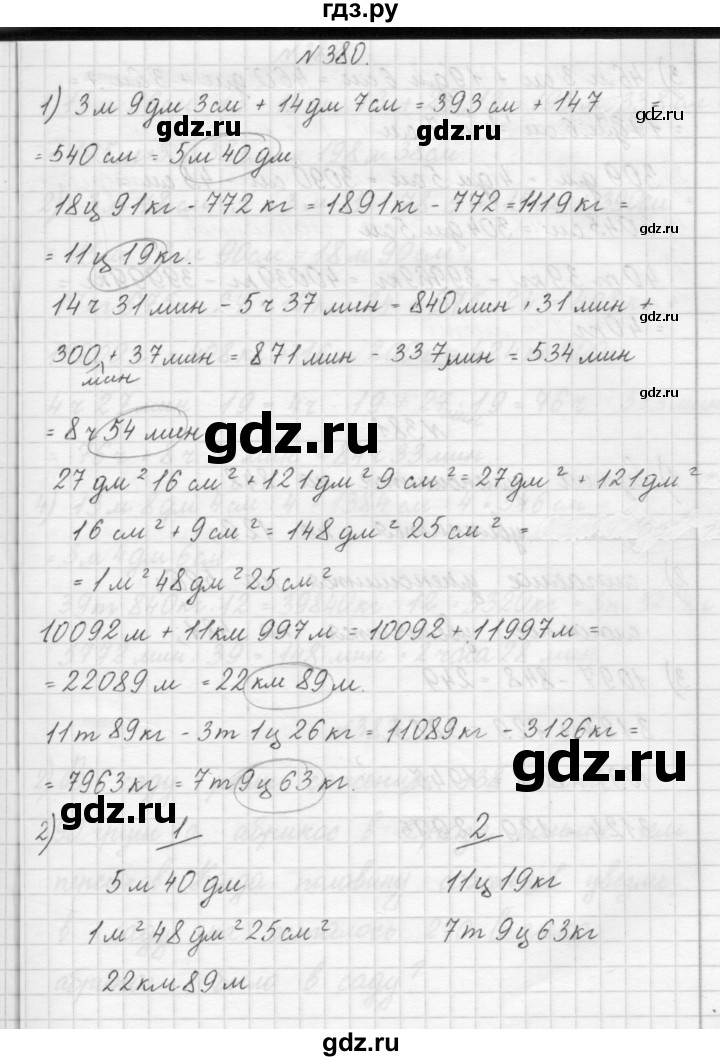 гдз.ру
N 380.
1) 3м 9дм 3см + 14дм 7см = 393см + 147 =
gdz.ru
gdz.ru
= 540 см = 5м 40 дм.
gdz.ru
18ц 91кг - 772 кг = 1891кг - 772 = 1119кг =
gdz.ru
= 11ц 19кг.
14ч 31мин - 5ч 37 мин = 840мин + 31 мин +
gdz.ru
300 + 37мин = 871мин - 337мин = 534 мин
мин
gdz.ru
= 8ч 54 мин
gdz.ru
27 дм² 16 см² + 121дм² 9 см² = 27дм² + 121дм²
16 см² + 9см² = 148дм² 25см² =
= 1м² 48дм² 25см²
10092м + 11км 997м = 10092 + 11997м =
= 22089м = 22км 89м.
11т 89кг - 3т 1ц 26кг = 11089кг - 3126кг =
gdz.ru
= 7963кг = 7т 9ц 63кг.
gdz.ru
2) 1 2
5м 40 дм 11ц 19кг
1м² 48дм² 25см² 7т 9ц 63кг
22км 89м
gdz.ru